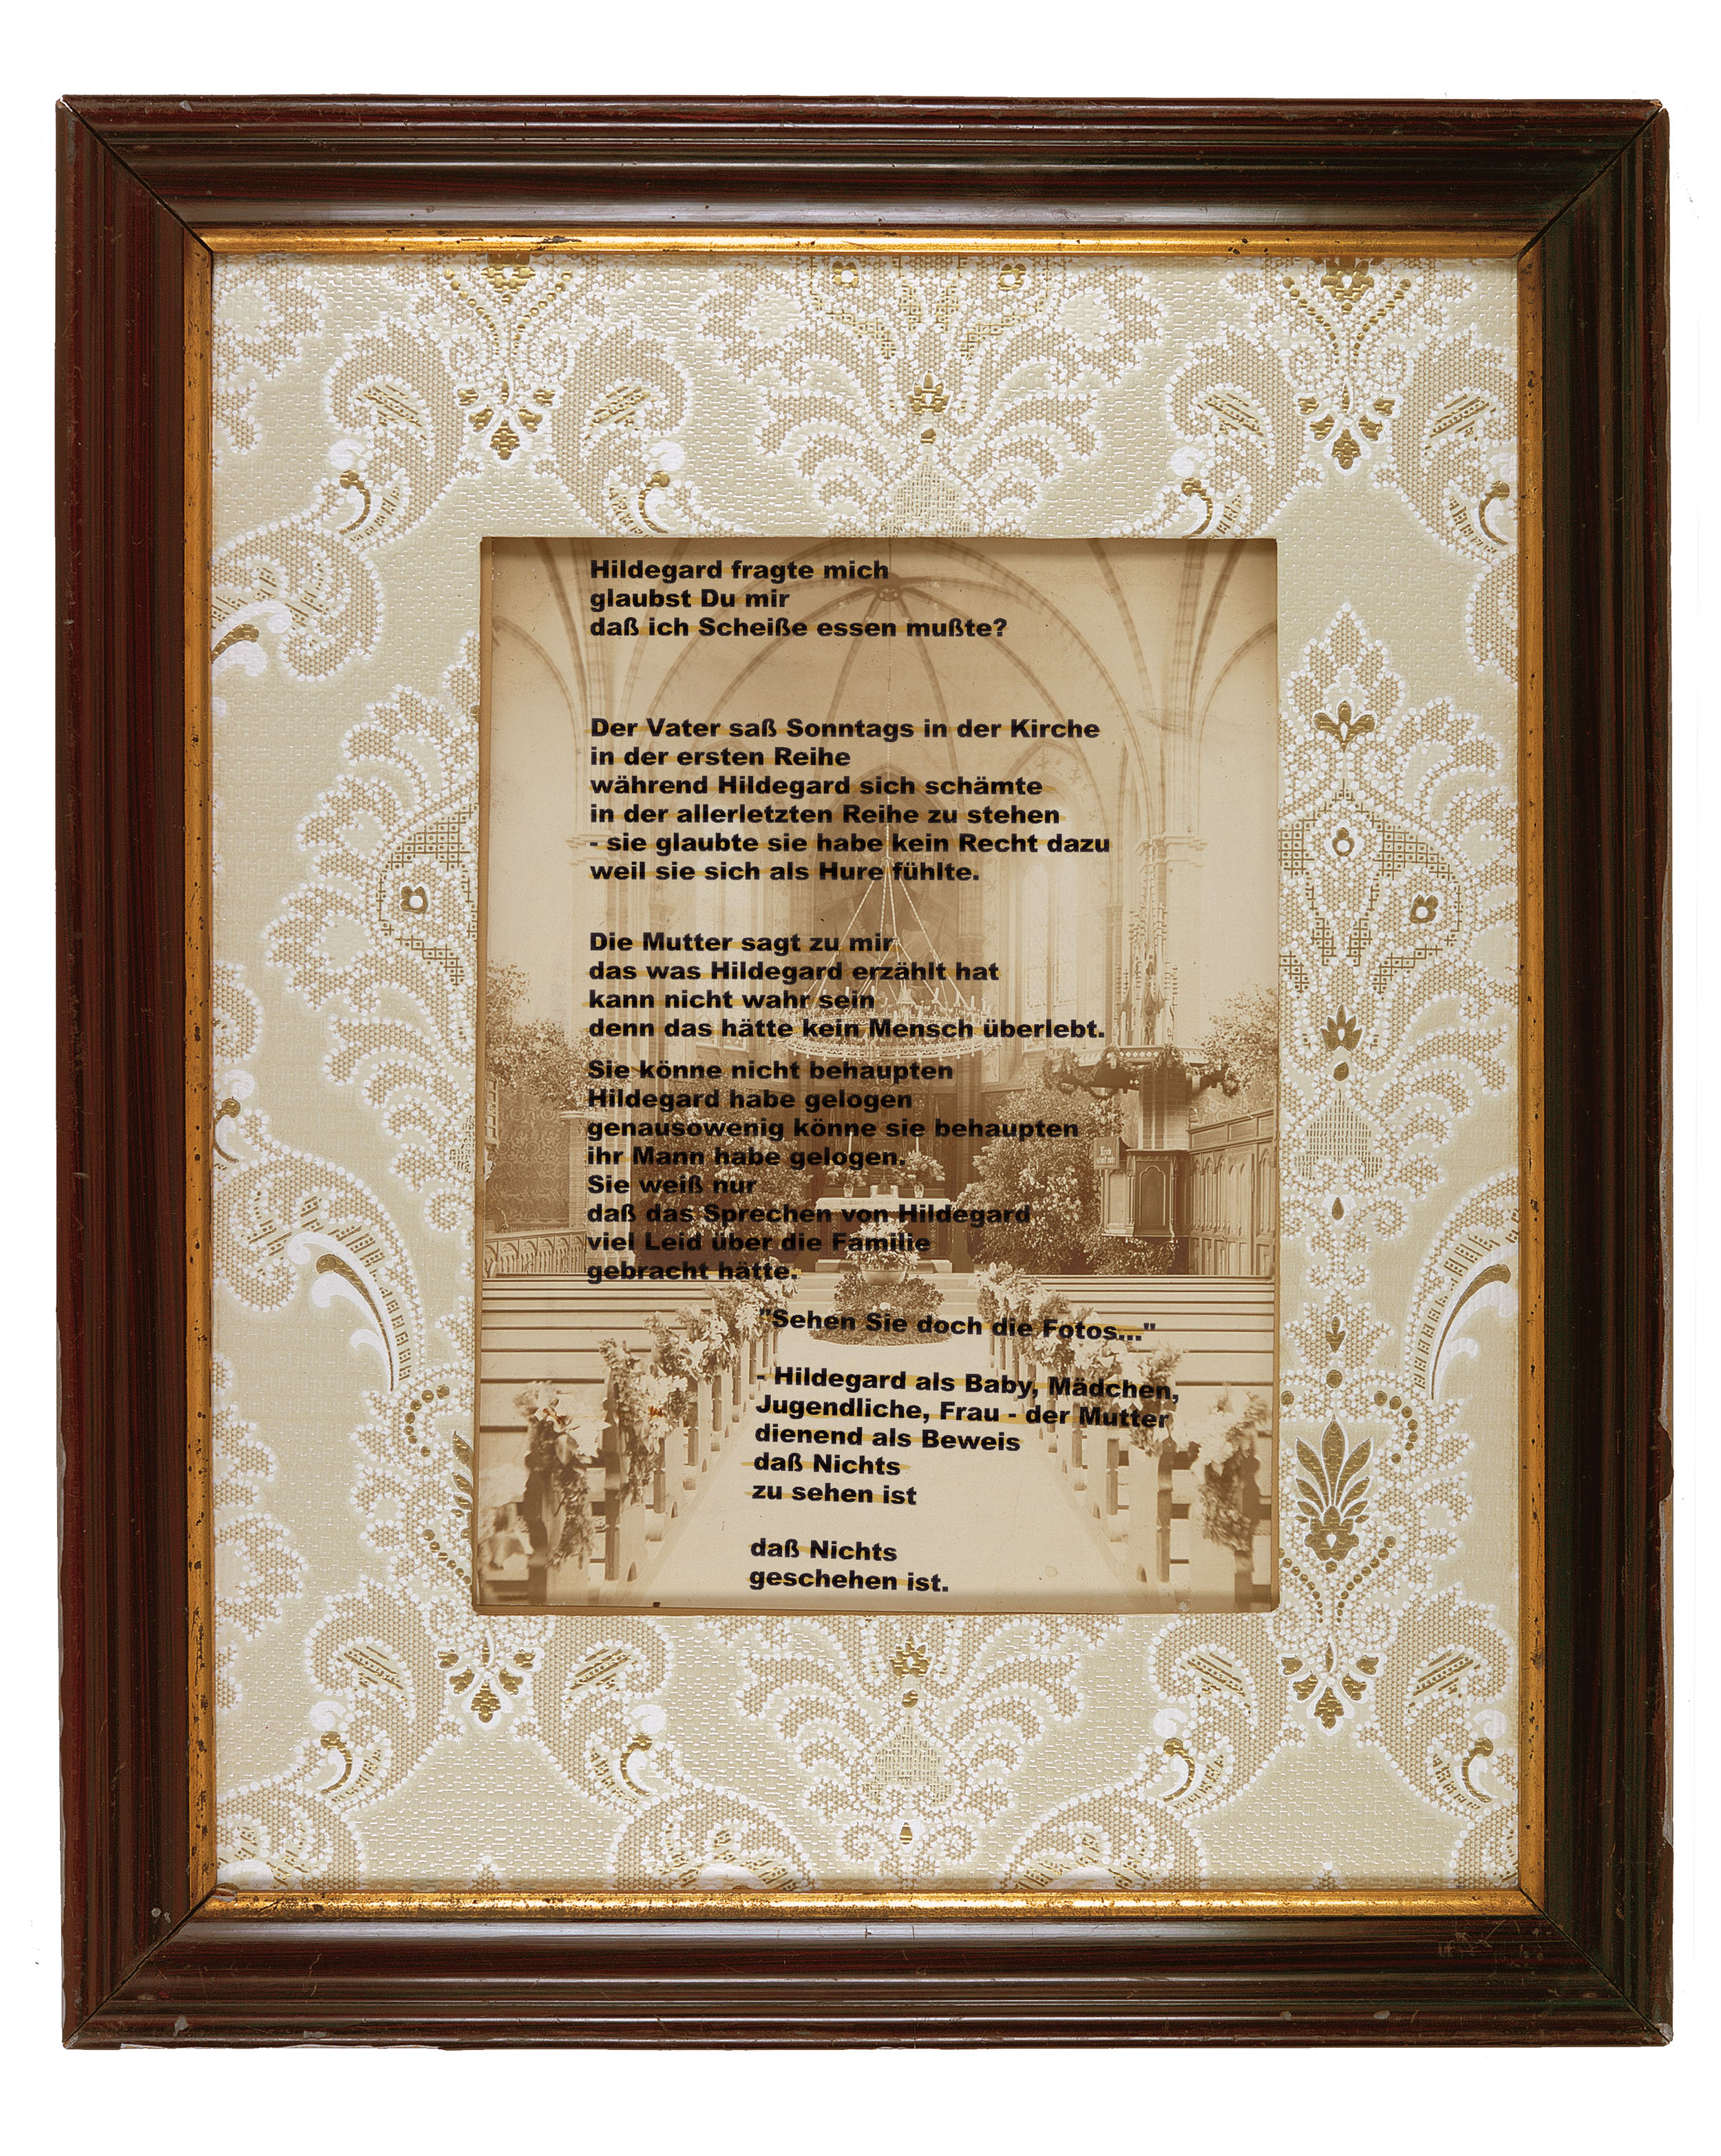 Hildegard fragte mich
glaubst Du mir
daß ich Scheiße essen mußte?
Der Vater saß Sonntags in der Kirche
in der ersten Reihe
während Hildegard sich schämte
in der allerletzten Reihe zu stehen
- sie glaubte sie habe kein Recht dazu
weil sie sich als Hure fühlte.
Die Mutter sagt zu mir
das was Hildegard erzählt hat
kann nicht wahr sein
denn das hätte kein Mensch überlebt.
Sie könne nicht behaupten
Hildegard habe gelogen
genausowenig könne sie behaupten
ihr Mann habe gelogen.
Sie weiß nur
daß das Sprechen von Hildegard
viel Leid über die Familie
gebracht hätte.
"Sehen Sie doch die Fotos..."
- Hildegard als Baby, Mädchen,
Jugendliche, Frau - der Mutter
dienend als Beweis
daß Nichts
zu sehen ist
daß Nichts
geschehen ist.